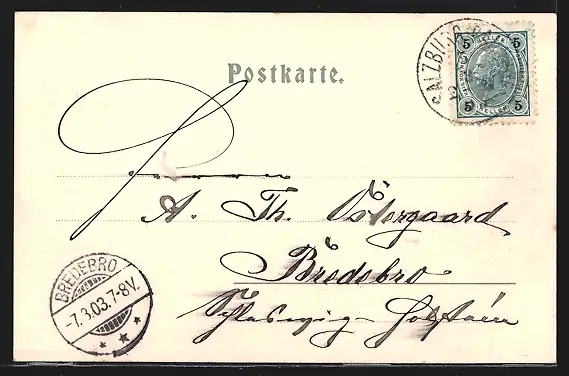 Postkarte.
5 HELLER 5
5 HELLER 5
SALZBURG
Herrn
A. Th. Östergaard
Bredebro
Schleswig-Holstein
BREDEBRO
-7.3.03.7-8V.